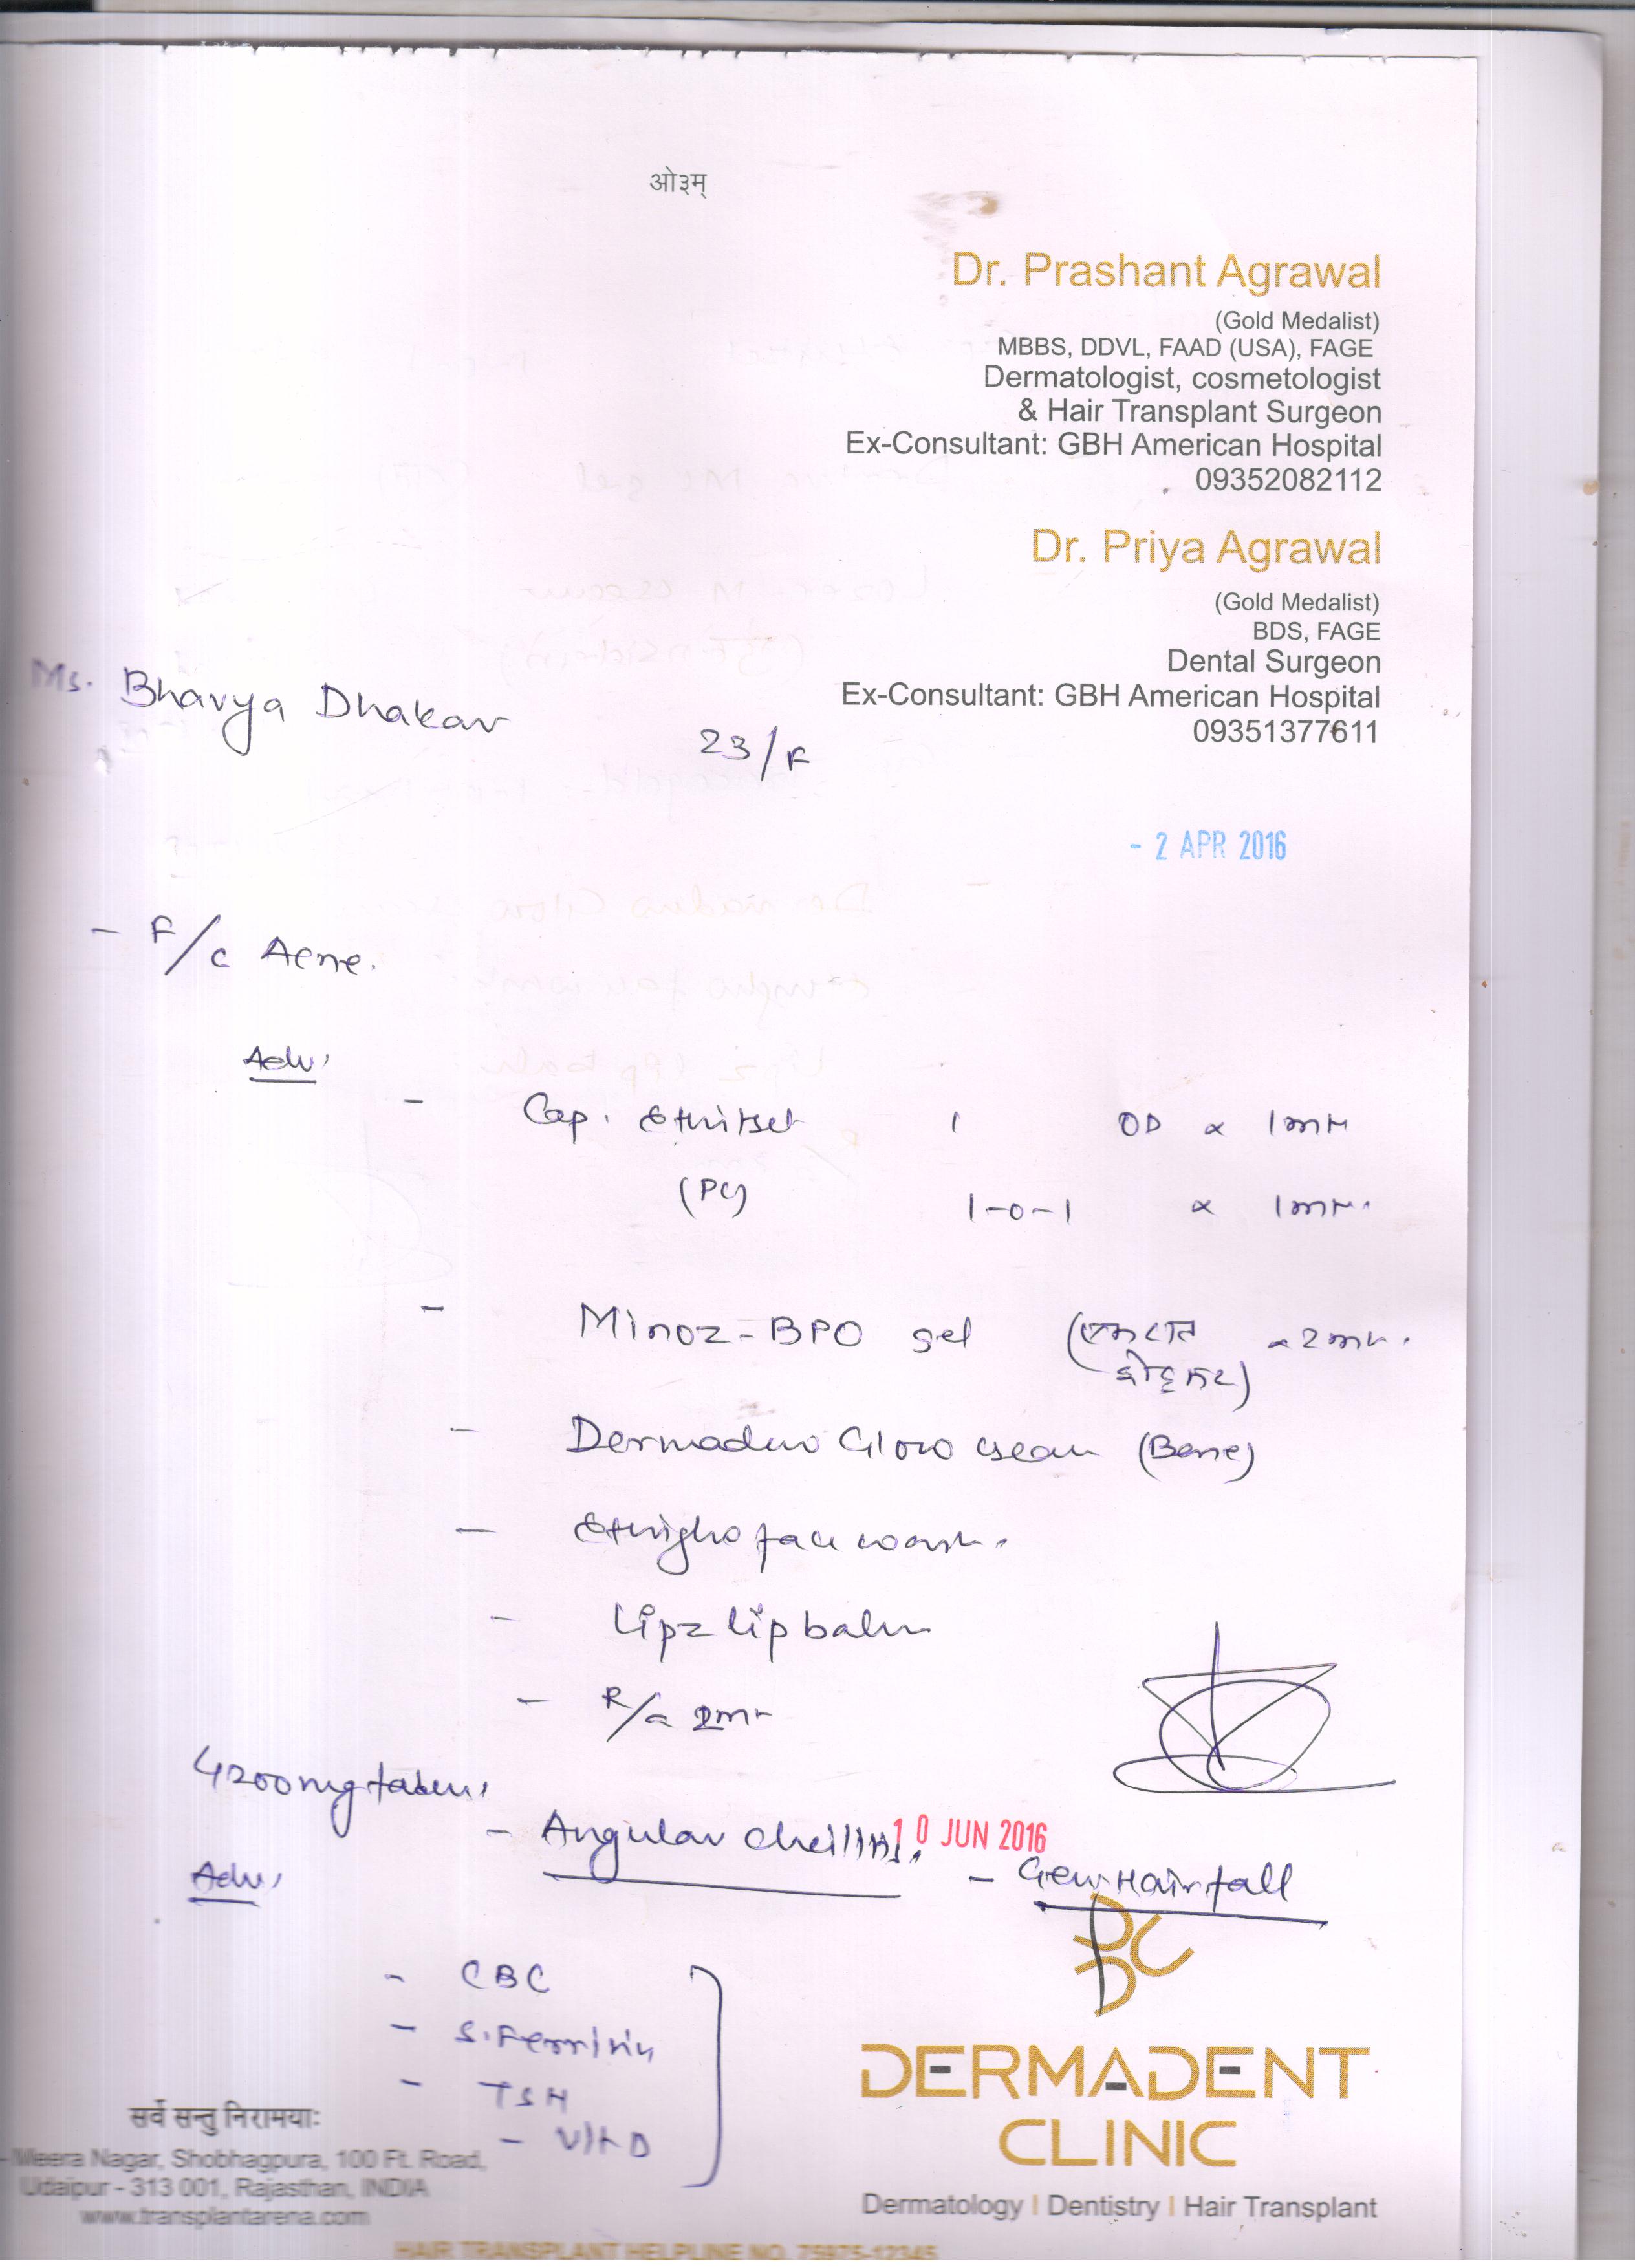 ओ३म्
Dr. Prashant Agrawal
(Gold Medalist)
MBBS, DDVL, FAAD (USA), FAGE
Dermatologist, cosmetologist
& Hair Transplant Surgeon
Ex-Consultant: GBH American Hospital
09352082112
Dr. Priya Agrawal
(Gold Medalist)
BDS, FAGE
Dental Surgeon
Ex-Consultant: GBH American Hospital
09351377611
Ms. Bhavya Dhakar
23/F
- 2 APR 2016
- F/c Acne.
Adv.
- Cap. 1 OD x 1mth
(PC) 1-0-1 x 1mth.
- Minoz-BPO gel x 2mth.
- Glow cream
- face wash.
- Lipz lip balm
- R/a 2mth
4200mg taken.
- Angular cheilitis. 10 JUN 2016
- Gen. Hair fall
Adv.
- CBC
- S. Ferritin
- TSH
- Vit D
DERMADENT
CLINIC
Dermatology | Dentistry | Hair Transplant
सर्वे सन्तु निरामयाः
Meera Nagar, Shobhagpura, 100 Ft. Road,
Udaipur - 313 001, Rajasthan, INDIA
www.transplantarena.com
HAIR TRANSPLANT HELPLINE NO. 75975-12345